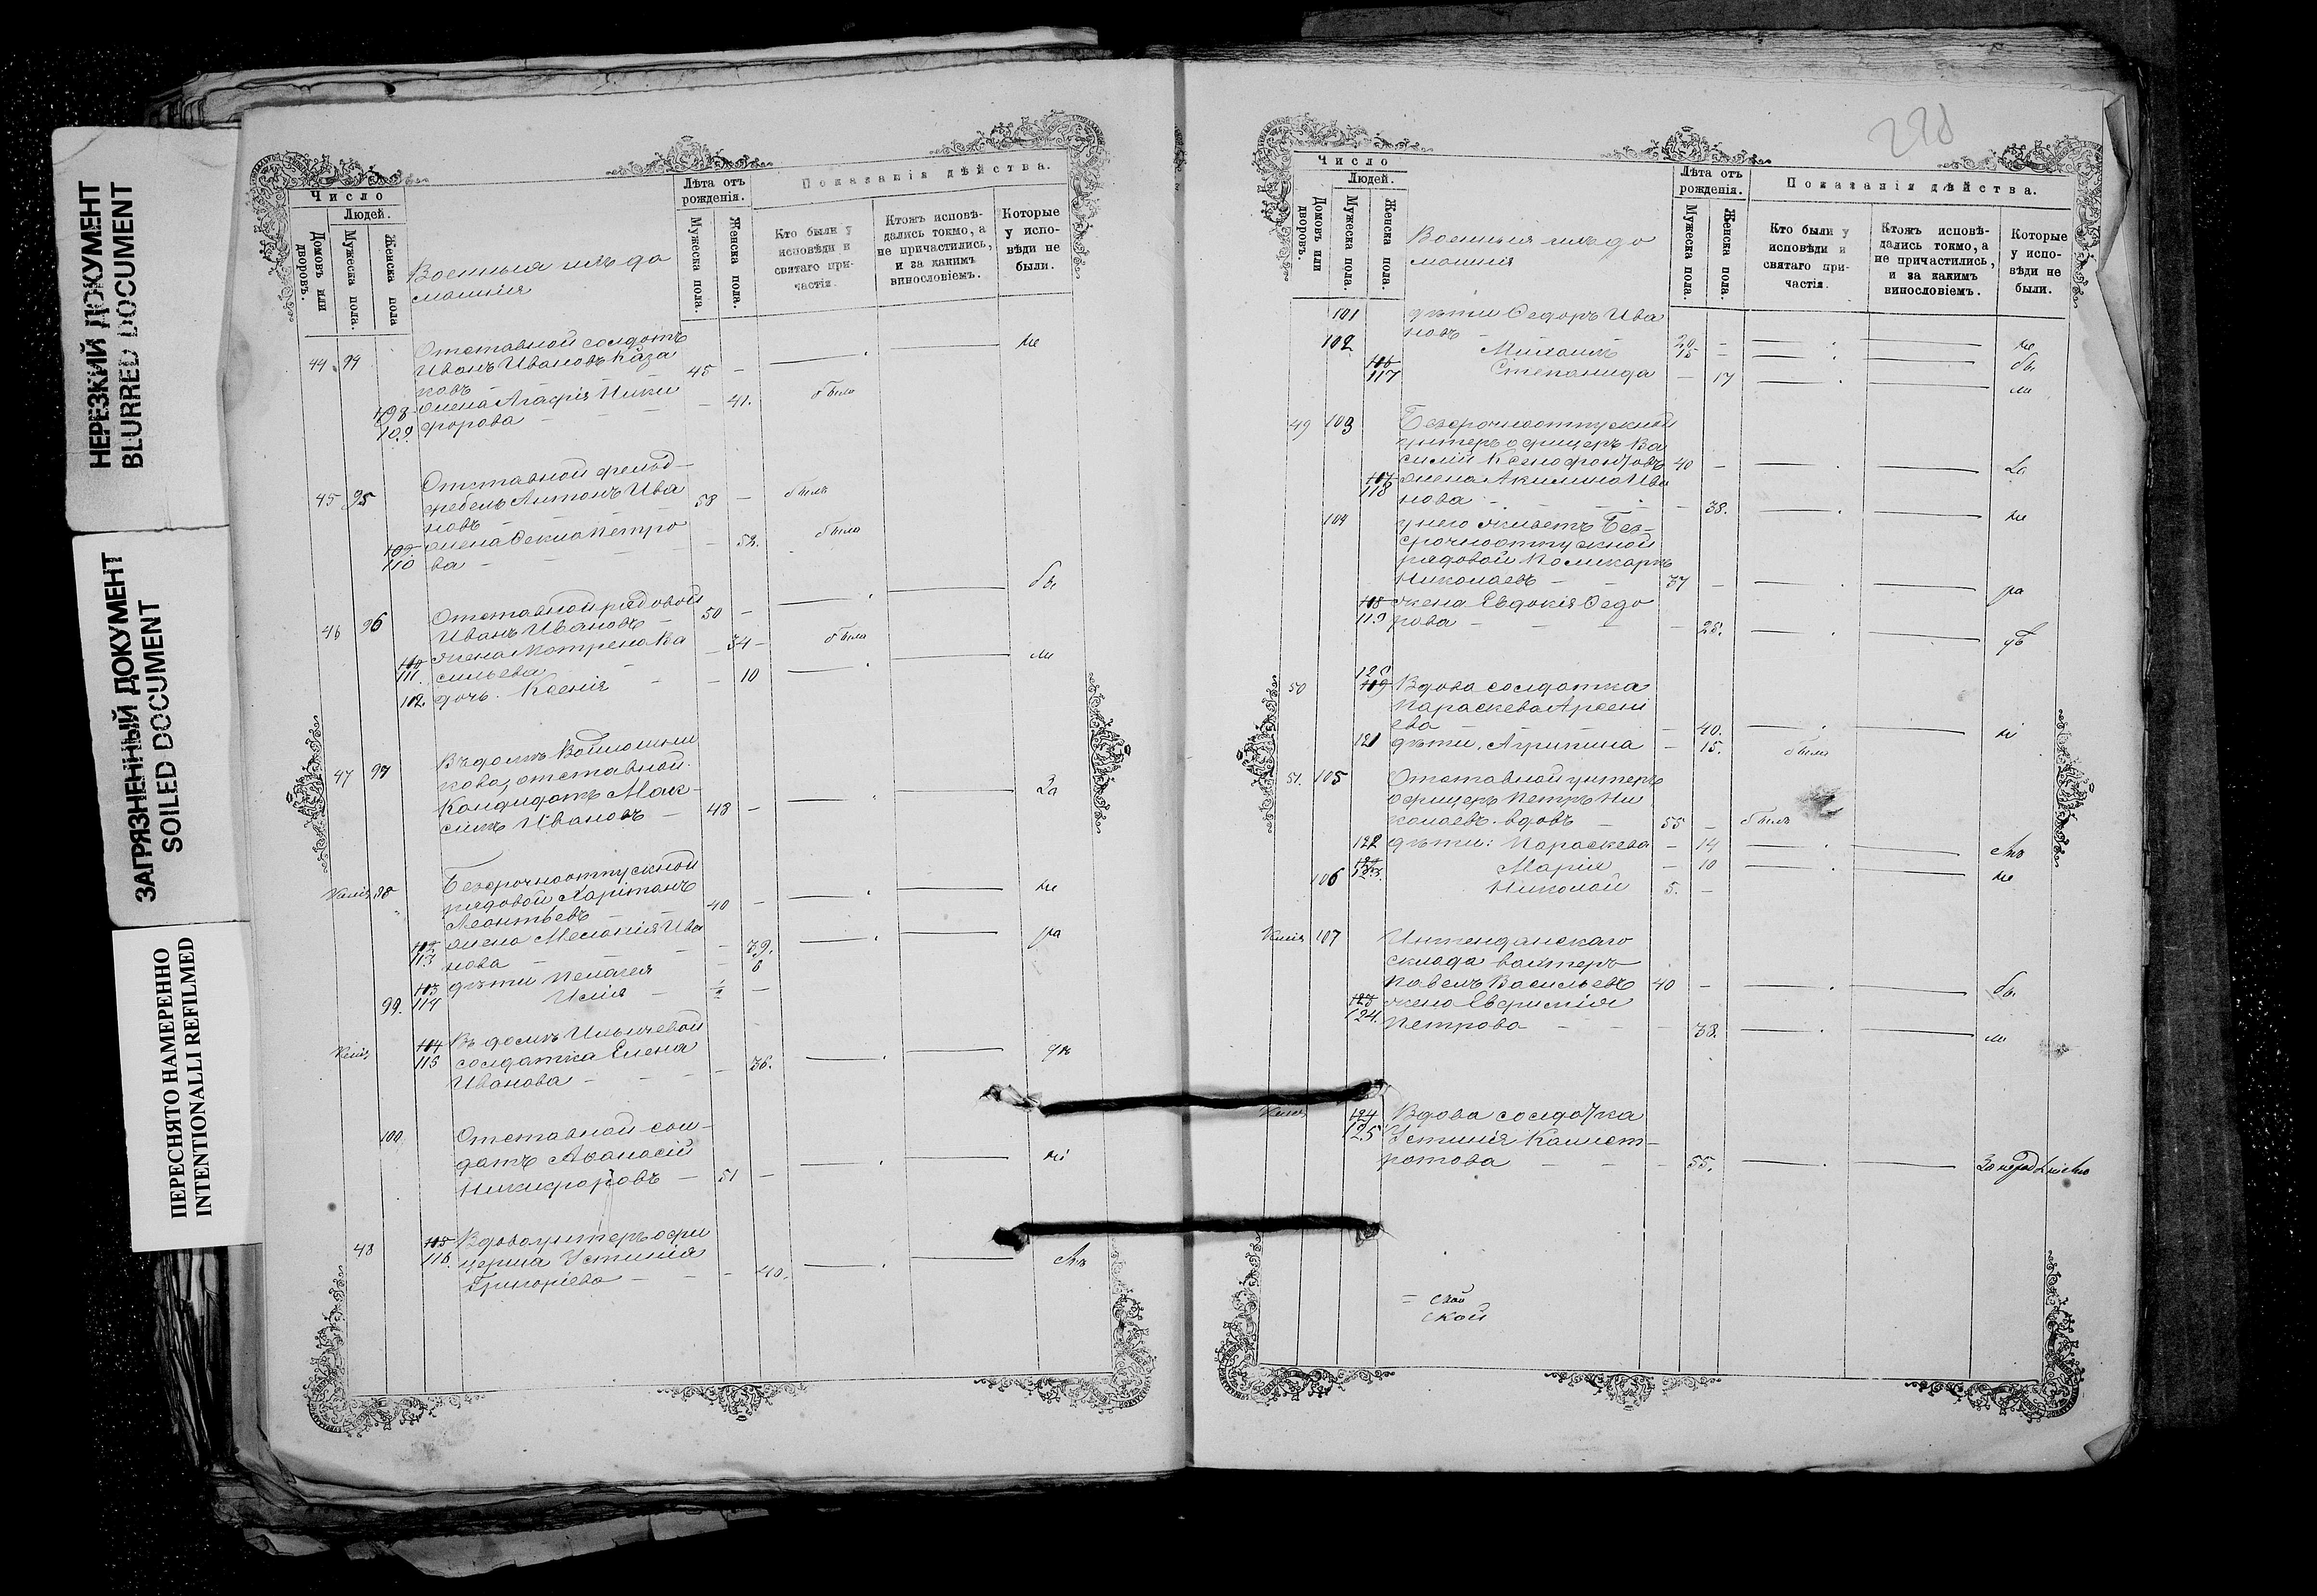 НЕРЕЗКИЙ ДОКУМЕНТ
BLURRED DOCUMENT
ЗАГРЯЗНЕННЫЙ ДОКУМЕНТ
SOILED DOCUMENT
ПЕРЕСНЯТО НАМЕРЕННО
INTENTIONALLI REFILMED
Число
Людей.
Домовъ или дворовъ.
Мужеска пола.
Женска пола
Военныя ихъ до
машнія
Лѣта отъ рожденія.
Мужеска пола.
Женска пола.
Показанія дѣйства.
Кто были у исповѣди и святаго причастія.
Ктожъ исповѣдались токмо, а не причастились, и за какимъ винословіемъ.
Которые у исповѣди не были.
44 94 Отставной солдатъ
Иванъ Ивановъ Каза
ковъ 45 — не
108
109 жена Агафія Ники
форова — 41. была
45 95 Отставной фельд-
фебель Антонъ Ива
новъ 58 — былъ
109
110 жена Фекла Петро
ва — 52. была
46 96 Отставной рядовой
Иванъ Ивановъ 50 — бы
110
111. жена Матрена Ва
сильева — 34 — была
112. дочь. Ксенія — 10 ли
47 97 Въ домѣ Войлошни
кова, отставной
Кандидатъ Мак-
симъ Ивановъ — 48 — За
98 Безсрочноотпускной
рядовой Харитонъ
Леонтьевъ 40 — не
112
113 жена Меланія Ива
нова — 39. ра
103
114 дѣти Пелагея — 6
99. Илія ½ —
104
115 Въ домѣ Ильичевой
солдатка Елена
Иванова — 36.
100. Отставной сол-
датъ Аѳанасій
Никифоровъ — 51 —
48 105
116. Вдова унтеръ офи
церша Устинія
Григоріева — 40.
220
Число
Людей.
Домовъ или дворовъ.
Мужеска пола.
Женска пола.
Военныя ихъ до
машнія
Лѣта отъ рожденія.
Мужеска пола.
Женска пола.
Показанія дѣйства.
Кто были у исповѣди и святаго причастія.
Ктожъ исповѣдались токмо, а не причастились, и за какимъ винословіемъ.
Которые у исповѣди не были.
101 дѣти Федоръ Ива
новъ 20 — не
102 Михаилъ 18 — бы
106
117 Степанида — 17 ли
49 103 Безсрочноотпускной
унтеръ офицеръ Ва
силій Ксенофонтовъ 40 — За
107
118 жена Акилина Ива
нова — 38. не
104 у него живетъ Без-
срочноотпускной
рядовой Поликарпъ
Николаевъ 37 — ра
108
119 жена Евдокія Федо
рова — 28.
50 120
109 Вдова солдатка
Параскева Арсені
ева — 40.
121 дѣти. Агрипина — 15. была
51. 105 Отставной унтеръ
офицеръ Петръ Ни
колаевъ. вдовъ 55 — былъ
122 дѣти: Параскева — 14
123. Марія — 10
106 Николай 5. —
107 Интенданскаго
склада вахтеръ
Павелъ Васильевъ 40 — бы
123
124. жена Евфимія
Петрова — 38. ли
124
125 Вдова солдатка
Устинія Калист-
ратова — 55.
= скои
ской